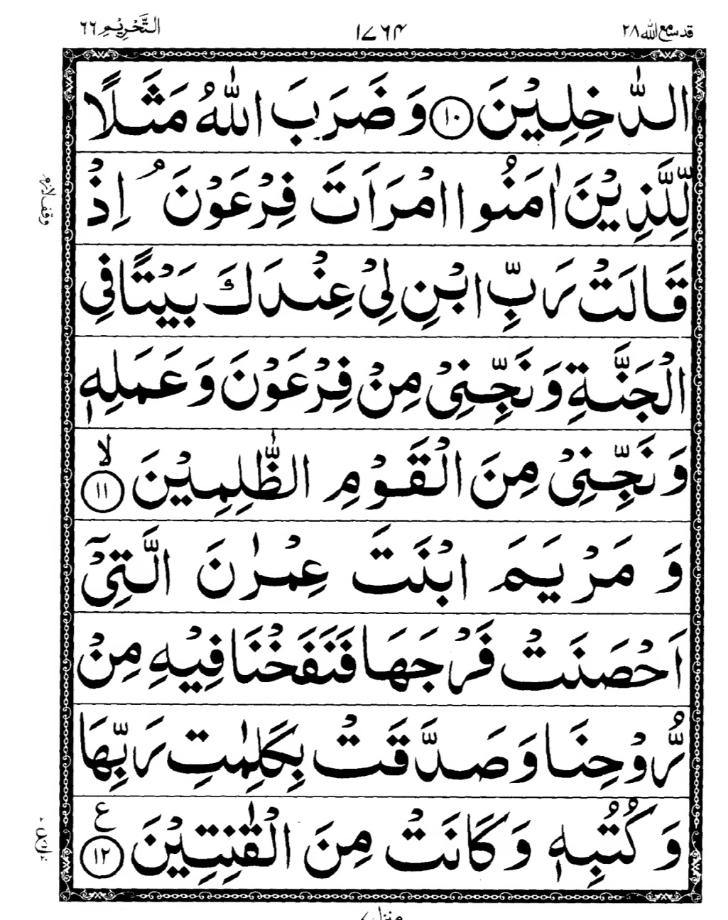 التَّحْرِيْم ٦٦ ١٧٦٤ قد سمع الله ٢٨
الدّٰخِلِيْنَ ۝١٠ وَضَرَبَ اللّٰهُ مَثَلًا
لِّلَّذِيْنَ اٰمَنُوا امْرَاَتَ فِرْعَوْنَ ۘ اِذْ
قَالَتْ رَبِّ ابْنِ لِيْ عِنْدَكَ بَيْتًا فِي
الْجَنَّةِ وَنَجِّنِيْ مِنْ فِرْعَوْنَ وَعَمَلِهٖ
وَنَجِّنِيْ مِنَ الْقَوْمِ الظّٰلِمِيْنَ ۙ۝١١
وَ مَرْيَمَ ابْنَتَ عِمْرٰنَ الَّتِيْٓ
اَحْصَنَتْ فَرْجَهَا فَنَفَخْنَا فِيْهِ مِنْ
رُّوْحِنَا وَصَدَّقَتْ بِكَلِمٰتِ رَبِّهَا
وَكُتُبِهٖ وَكَانَتْ مِنَ الْقٰنِتِيْنَ ۝١٢ ع
وقف لازم
منزل ٧